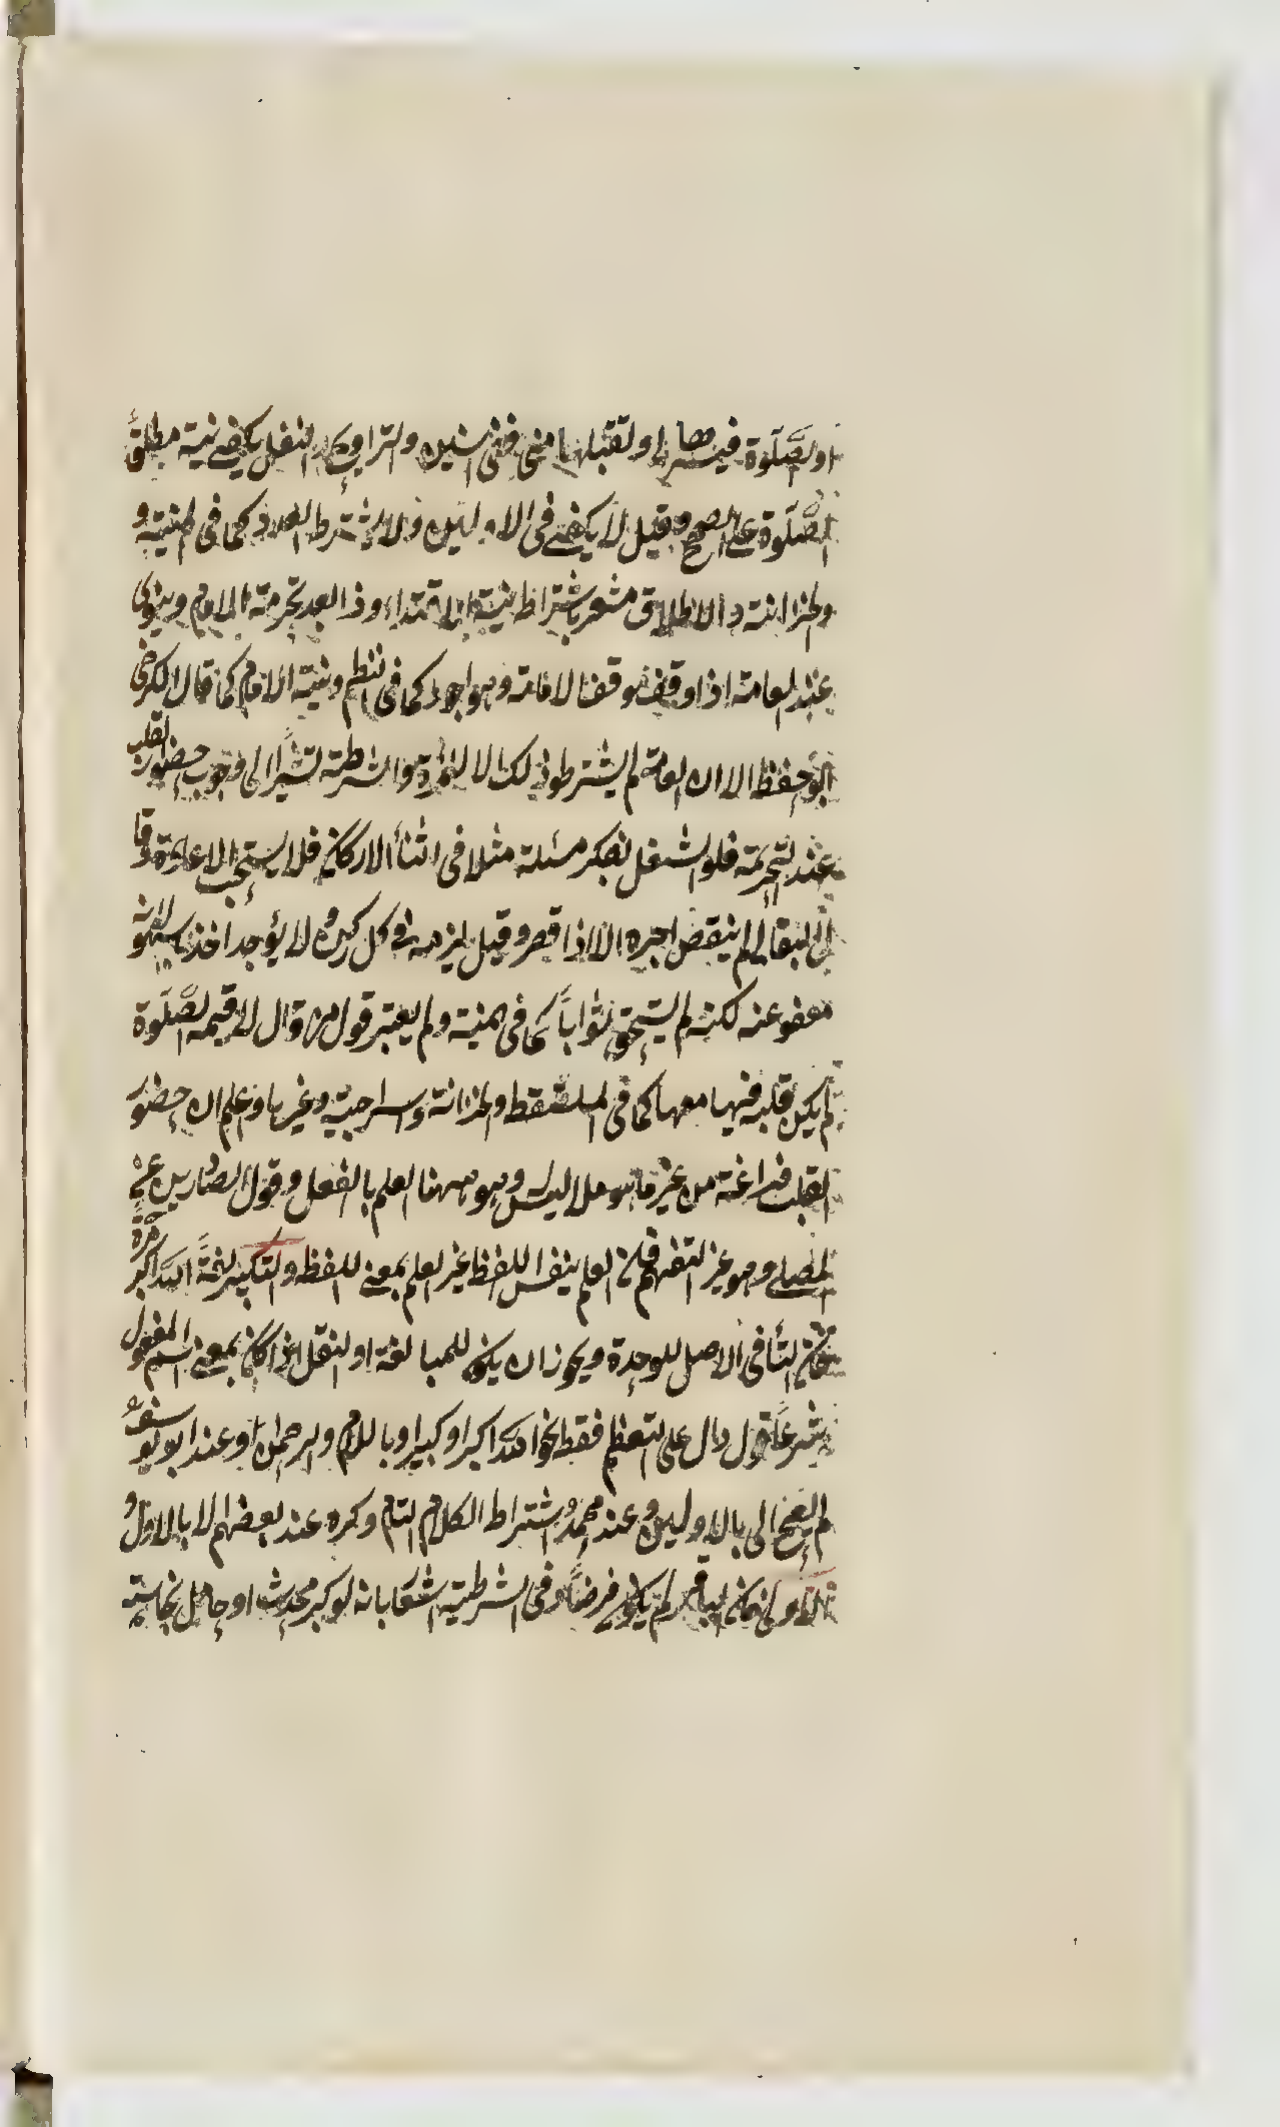 او الصلوة فيسرها او تقبلها مني ففي السنن والتراويح والنفل يكفي نية مطلق
الصلوة على الصحيح وقيل لا يكفي في الاوليين ولا يشترط العدد كما في المنية و
والخزانة والاطلاق مشعر باشتراط نية الاقتداء وذا بعد تحرمة الامام وينوى
عند العامة اذا وقف موقف الامامة وهو اجود كما في النظم ونية الامام كما قال الكرخى
ابو حفظ الا ان العامة لم يشترطوا ذلك لا للنفراد وا شرطية تشيرا الى وجوب حضور القلب
عند التحريمة فلو اشتغل بفكر مسئلة مثلا في اثنأ الاركان فلا يستحب الاعادة وقا
ل البقالى لم ينقض اجره الا اذا قصر وقيل يلزمه في كل ركن ولا يؤخذ بالسهو لانه
معفو عنه لكنه لم يستحق ثوابا كما في المنية ولم يعتبر قول من قال لا قيمة لصلوة
لم يكن قلبه فيها معها كما في الملتقط والخزانة وسراجية وغيرها واعلم ان حضور
القلب فراغة من غير ما هو ملابس وهو ههنا العلم بالفعل وقول الصادرين عن
المصلى وهو غير التفهم فان العلم بنفس اللفظ غير العلم بمعنى اللفظ والتكبير لغة الله اكبر مرة
فان التأ في الاصل للوحدة ويجوز ان يكون للمبالغة او لنقل اذا كان بمعنى اسم المفعول
شرعا قول دال على التعظيم فقط نحو الله اكبر او كبير او باللام والرحمن او عند ابو يوسف
لم يصح الى بالاوليين وعند محمد اشتراط الكلام التام وكره عند بعضهم الا بالاول و
الاولى فان الباقى لم يكن فرضا وفي الشرطية اشعار بانه لو كبر محدث او حامل نجاسة